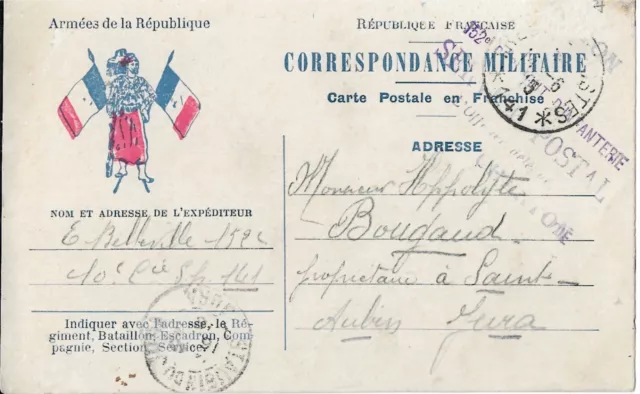 Armées de la République
RÉPUBLIQUE FRANÇAISE
CORRESPONDANCE MILITAIRE
Carte Postale en Franchise
ADRESSE
Monsieur Hippolyte
Bougaud
propriétaire à Saint-
Aubin Jura
NOM ET ADRESSE DE L'EXPÉDITEUR
E. Belleville 152e
10e Cie Sp. 141
Indiquer avec l'adresse, le Ré-
giment, Bataillon, Escadron, Com-
pagnie, Section, Service.
152e
INFANTERIE
POSTAL
POSTES
141
JURA